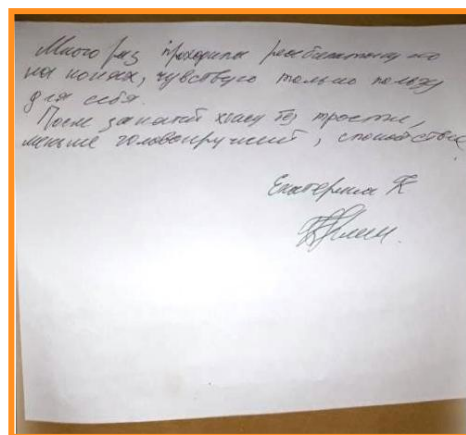 Много раз проходила реабилитацию
на конях, чувствую только пользу
для себя.
После занятий хожу без трости,
меньше головокружений, спокойствие.
Екатерина К